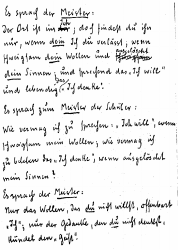 Es sprach der Meister:
Der Ort ist im Ich; doch findest du ihn
nur, wenn dein Ich du verlässt; wenn
schweigsam dein Wollen und ausgelöscht
dein Sinnen; und sprechend das „Ich will"
und lebendig „Ich denke".
Es sprach zum Meister der Schüler:
Wie vermag ich zu sprechen „Ich will", wenn
schweigsam mein Wollen; wie vermag ich
zu beleben das „Ich denke", wenn ausgelöscht
mein Sinnen?
Es sprach der Meister:
Nur das Wollen, das du nicht willst, offenbart
„Ich"; nur der Gedanke, den du nicht denkst,
kündet den „Geist".